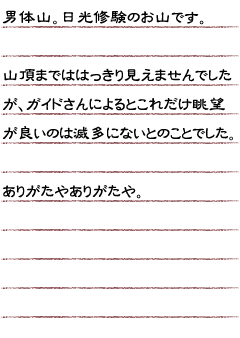 男体山。日光修験のお山です。
山頂まではっきり見えませんでした
が、ガイドさんによるとこれだけ眺望
が良いのは滅多にないとのことでした。
ありがたやありがたや。